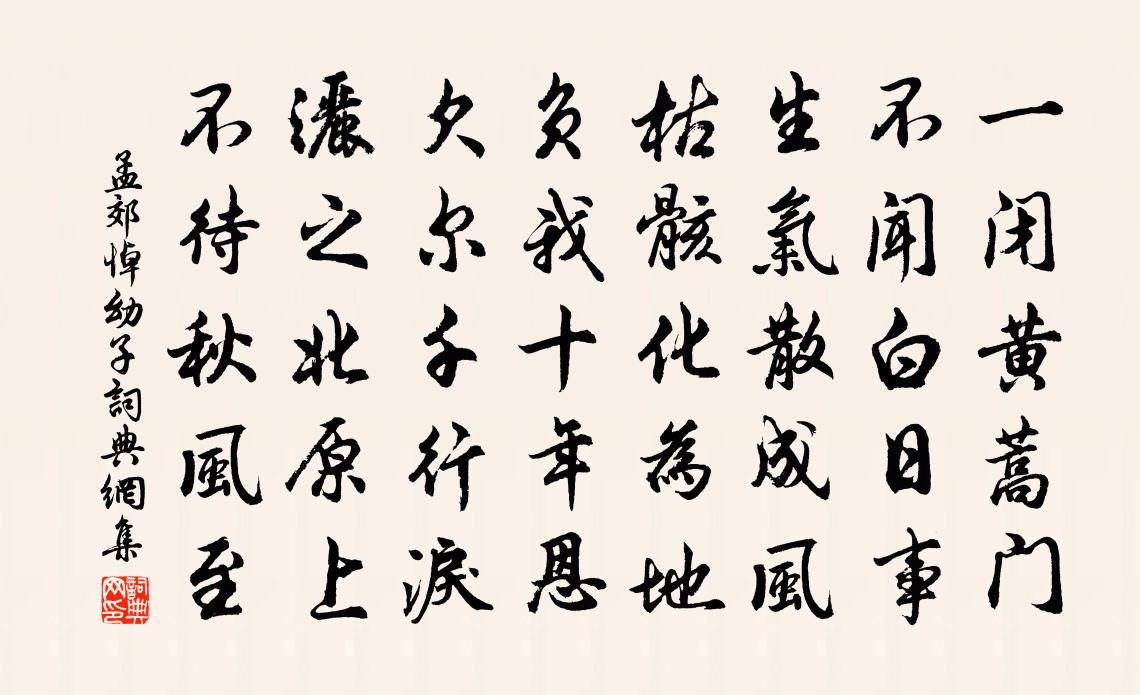 一闭黄蒿门
不聞白日事
生氣散成風
枯骸化為地
負我十年恩
欠尔千行淚
灑之北原上
不待秋風至
孟郊悼幼子詞典網集
詞典网印